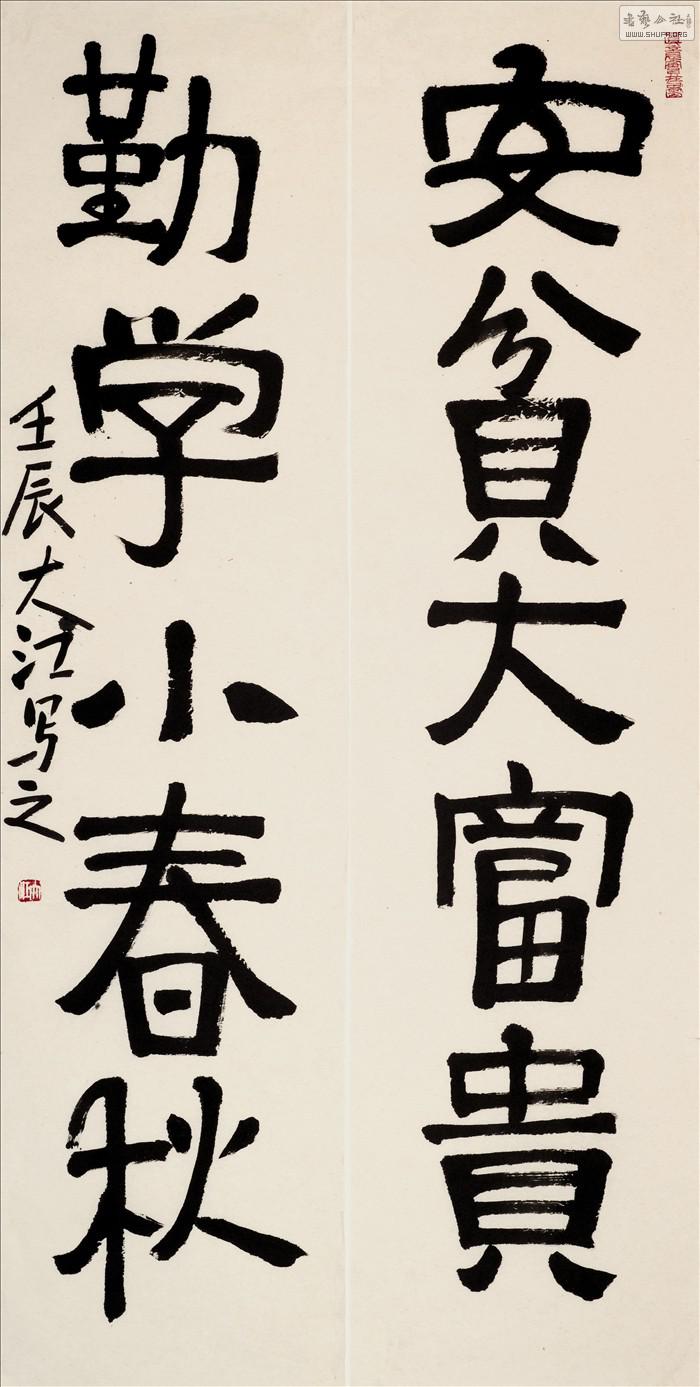 安貧大富貴
勤学小春秋
壬辰大江写之
书艺公社
WWW.SHUFA.ORG